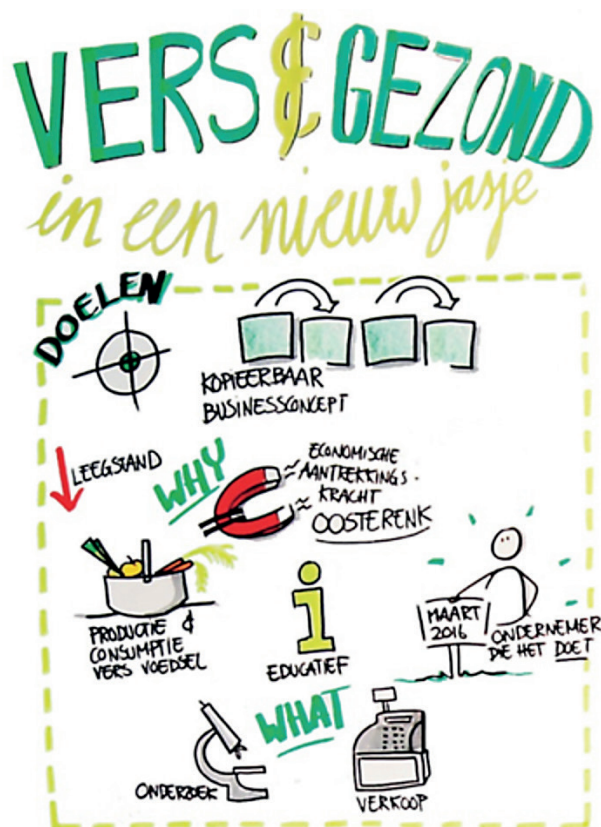 VERS & GEZOND
in een nieuw jasje
DOELEN
KOPIEERBAAR
BUSINESSCONCEPT
LEEGSTAND
WHY
ECONOMISCHE
AANTREKKINGS-
KRACHT
OOSTERENK
PRODUCTIE &
CONSUMPTIE
VERS VOEDSEL
EDUCATIEF
MAART
2016
ONDERNEMER
DIE HET DOET
WHAT
ONDERZOEK
VERKOOP